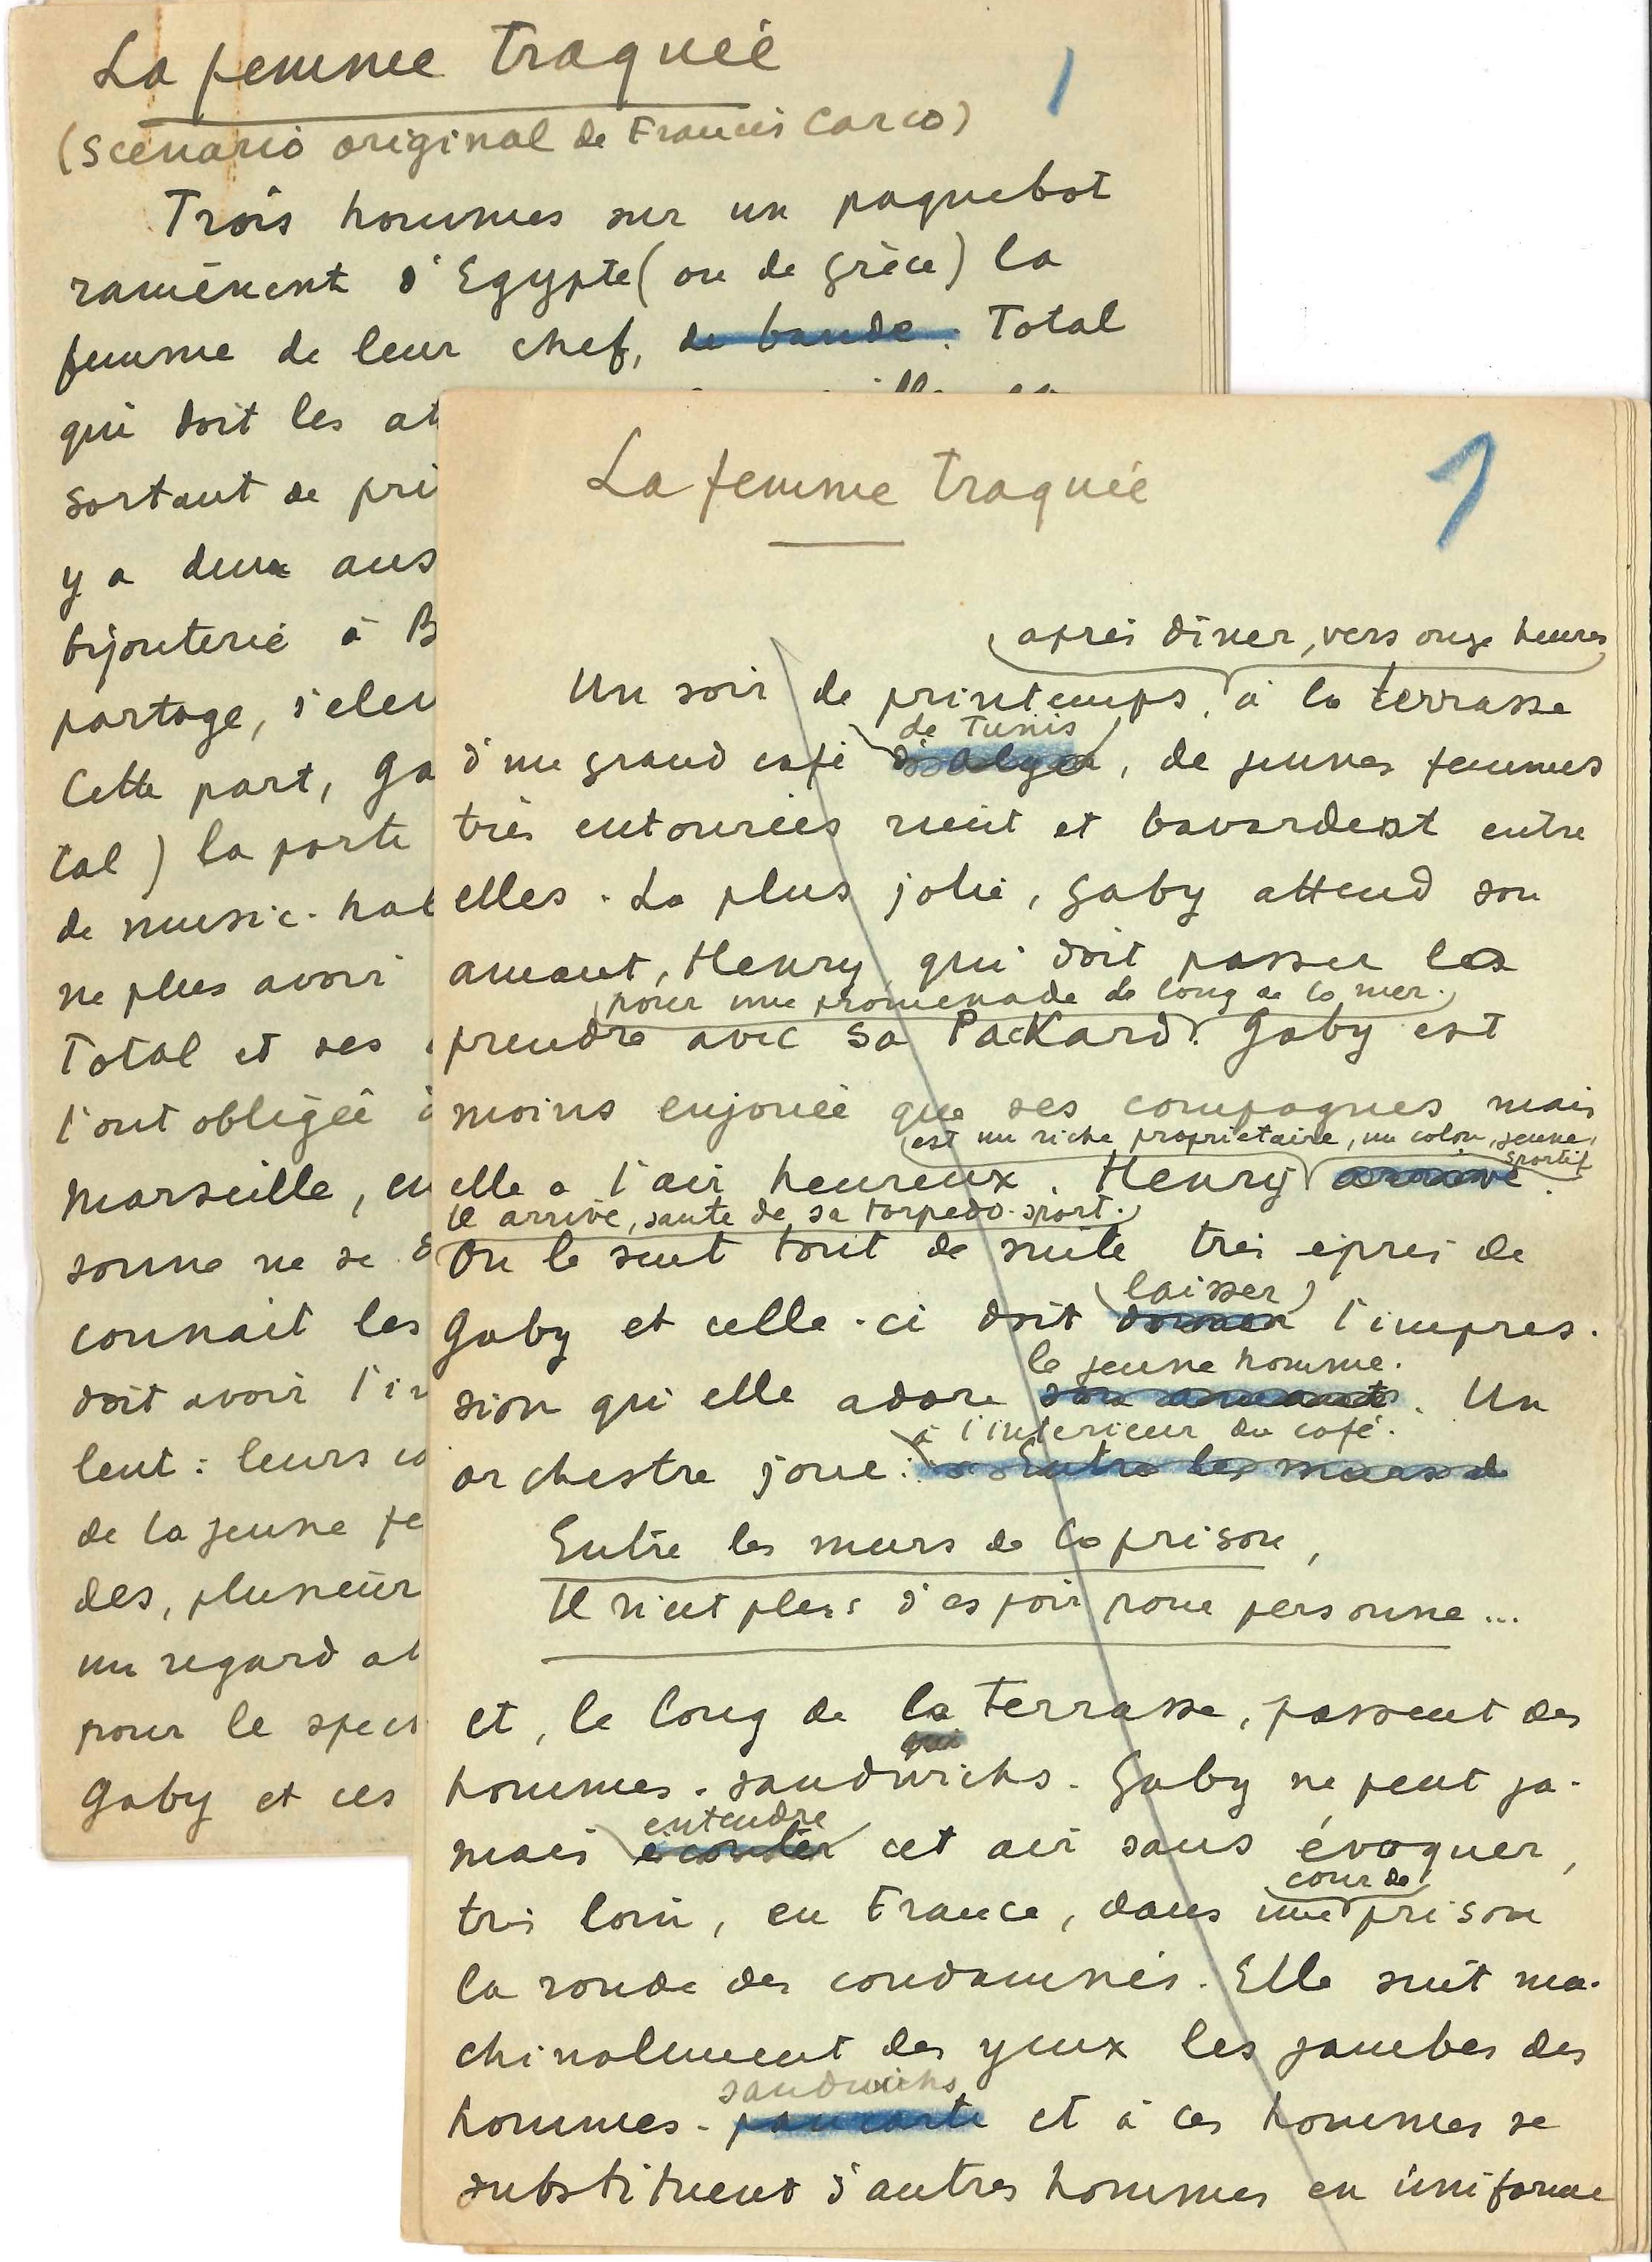 La femme traquée
1
(Scénario original de Francis Carco)
Trois hommes sur un paquebot
ramènent d'Egypte (ou de Grèce) la
femme de leur chef, de bande. Total
qui doit les at
sortant de pri
y a deux ans
bijouterie à B
partage, s'élev
Cette part, Ga
tal) la porte
de music-hal
ne plus avoir
Total et ses
l'ont obligée à
Marseille, en
sonne ne se d
connait les
doit avoir l'in
lent : leurs co
de la jeune fe
des, plusieur
un regard at
pour le spect
Gaby et ces
La femme traquée
1
après dîner, vers onze heures
Un soir de printemps, à la terrasse
de Tunis
d'un grand café d'Alger, de jeunes femmes
très entourées rient et bavardent entre
elles. La plus jolie, Gaby attend son
amant, Henry qui doit passer la
pour une promenade le long de la mer.
prendre avec sa Packard. Gaby est
moins enjouée que ses compagnes mais
est un riche propriétaire, un colon, jeune,
sportif
elle a l'air heureux. Henry arrive.
Il arrive, saute de sa torpedo-sport.
On le sent tout de suite très épris de
laisser
Gaby et celle-ci doit donner l'impres-
le jeune homme.
sion qu'elle adore son amant. Un
à l'intérieur du café.
orchestre joue : Entre les murs de
Entre les murs de la prison,
Il n'est plus d'espoir pour personne...
et, le long de la terrasse, passent des
qui
hommes-sandwichs. Gaby ne peut ja-
entendre
mais écouter cet air sans évoquer,
cour de
très loin, en France, dans une prison
la ronde des condamnés. Elle suit ma-
chinalement des yeux les jambes des
sandwichs
hommes-pancarte et à ces hommes se
substituent d'autres hommes en uniforme